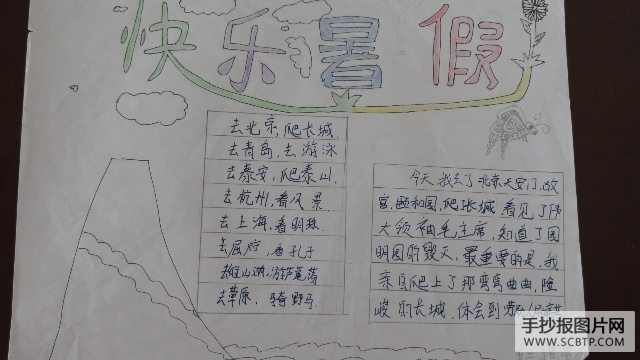 快乐暑假
去北京,爬长城.
去青岛,去游泳
去泰安,爬泰山.
去杭州,看风景
去上海,看明珠
去曲府,看孔子
去草原,骑野马.
今天,我去了北京天安门,故
宫,颐和园,爬长城,看见了伟
大领袖毛主席,知道了圆
明园的毁灭,最重要的是,我
亲自爬上了那弯弯曲曲,险
峻的长城,体会到
手抄报图片网
WWW.SCBTP.COM